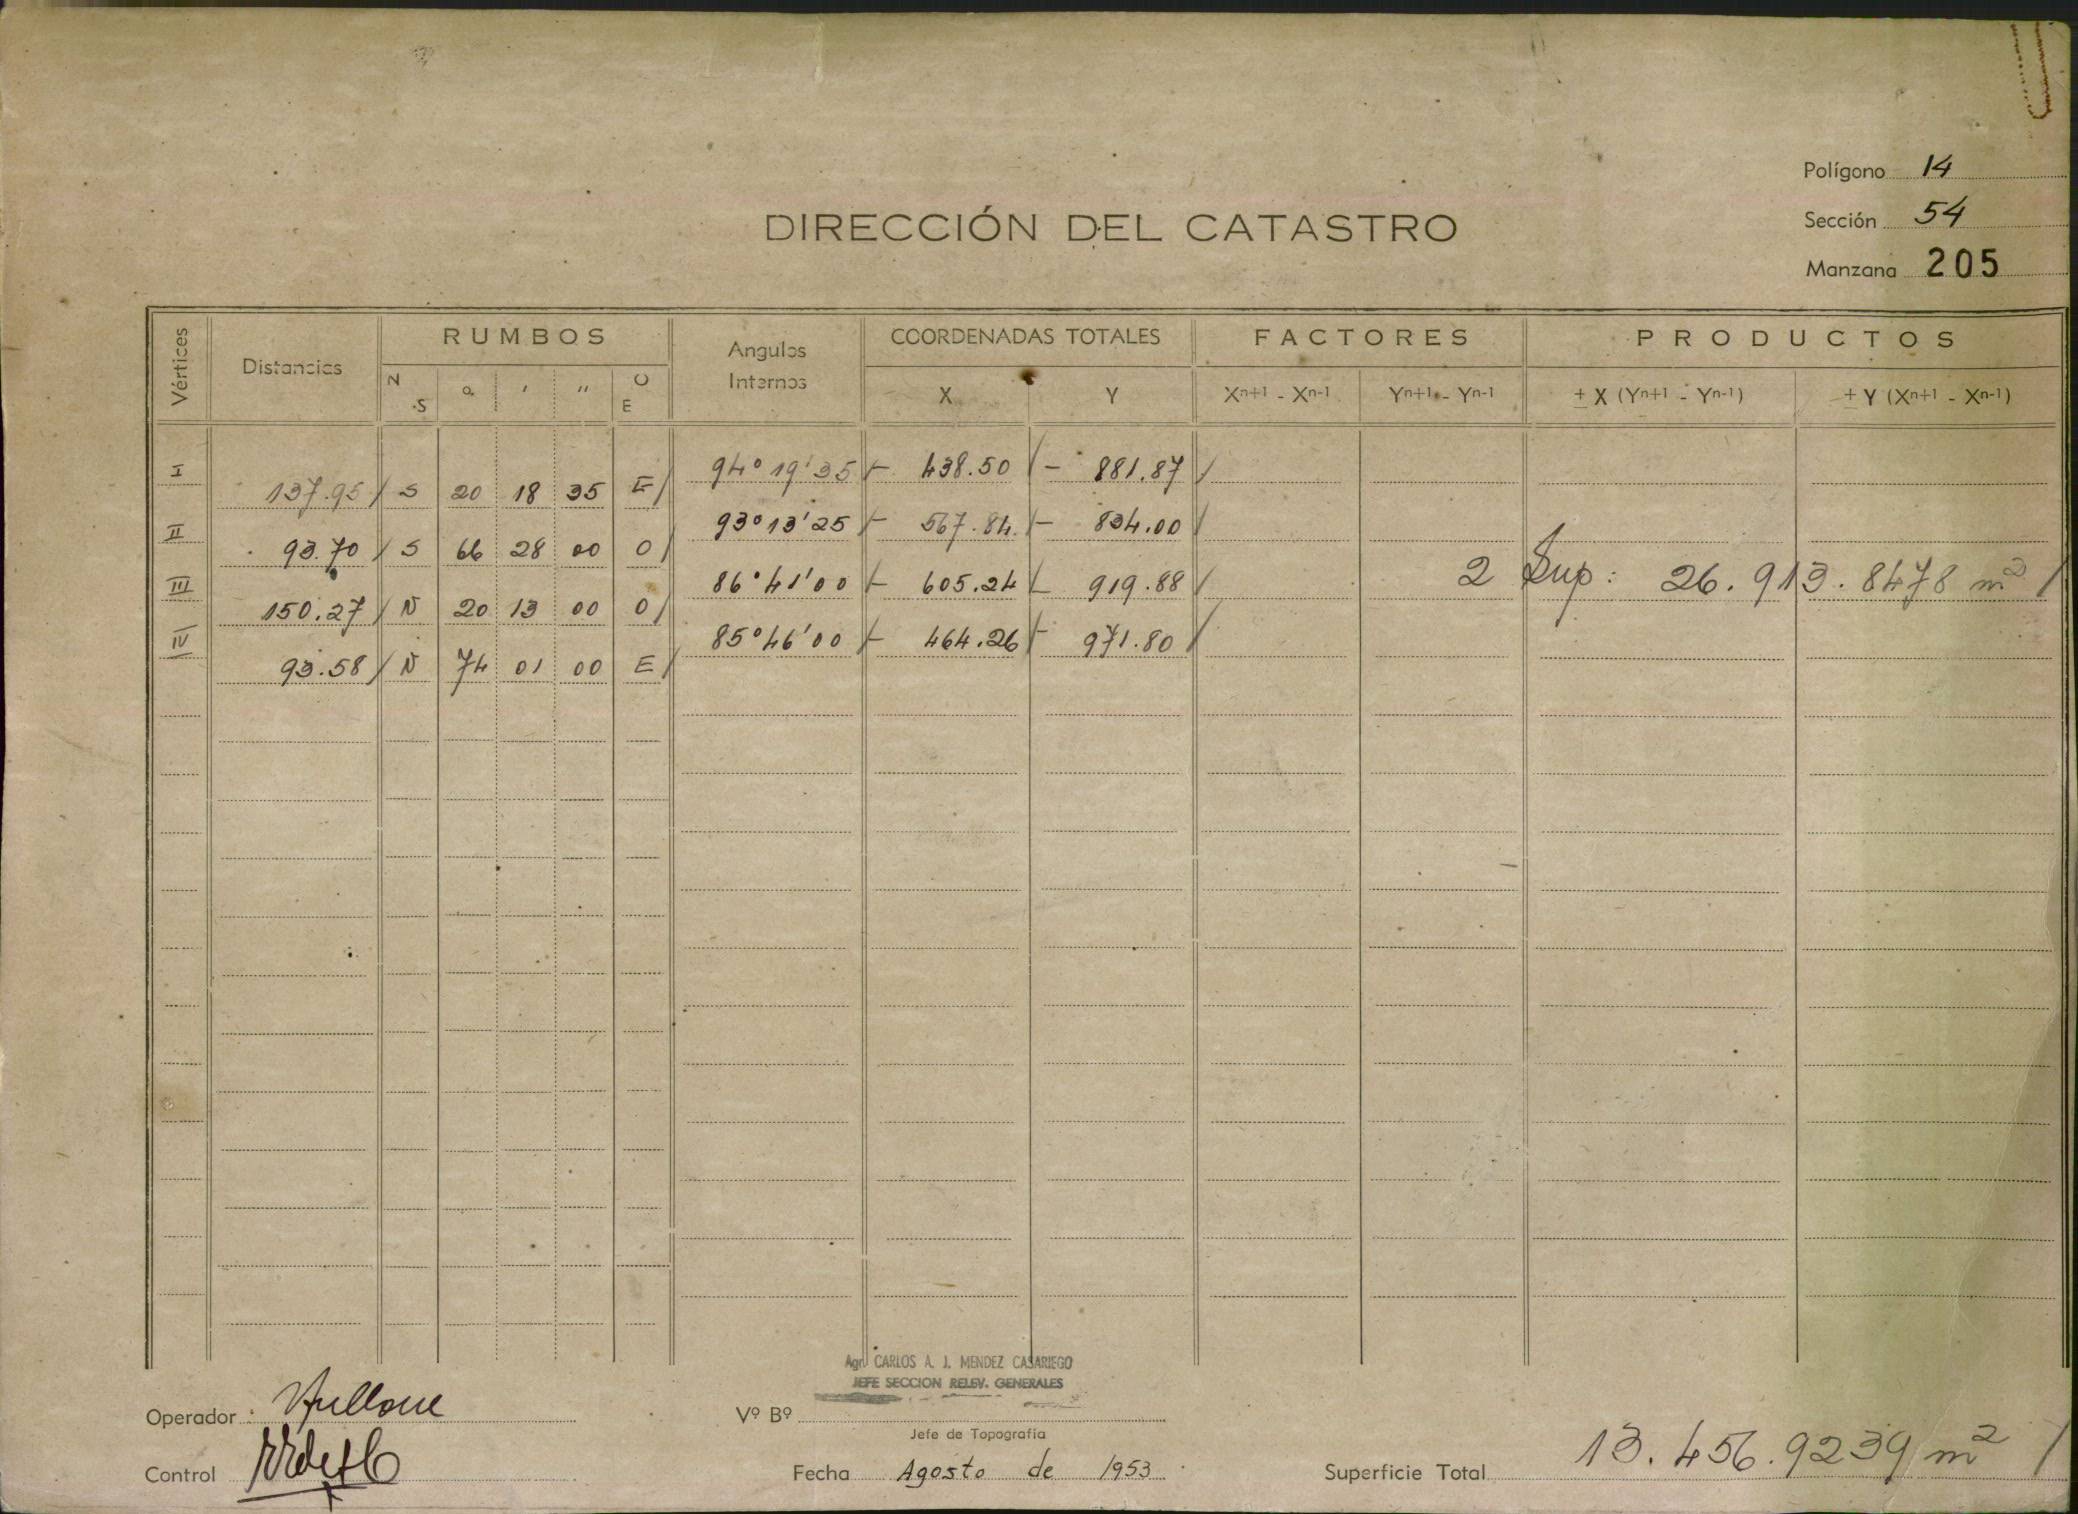 Polígono 14
DIRECCIÓN DEL CATASTRO
Sección 54
Manzana 205
Vértices Distancias RUMBOS Angulos Internos COORDENADAS TOTALES FACTORES PRODUCTOS
N S º ' " O E X Y Xn+1 - Xn-1 Yn+1 - Yn-1 ± X (Yn+1 - Yn-1) ± Y (Xn+1 - Xn-1)
I 94° 19' 35 - 438.50 - 881.87
137.95 S 20 18 35 E
II 93° 13' 25 - 567.84 - 834.00
93.70 S 66 28 00 O
III 86° 41' 00 - 605.24 - 919.88 2 Sup: 26.913.8478 m²
150.27 N 20 13 00 O
IV 85° 46' 00 - 464.26 - 971.80
93.58 N 74 01 00 E
Agr. CARLOS A. J. MENDEZ CASARIEGO
JEFE SECCION RELEV. GENERALES
Operador
Vº Bº
Jefe de Topografía
Control
Fecha Agosto de 1953
Superficie Total 13.456.9239 m²